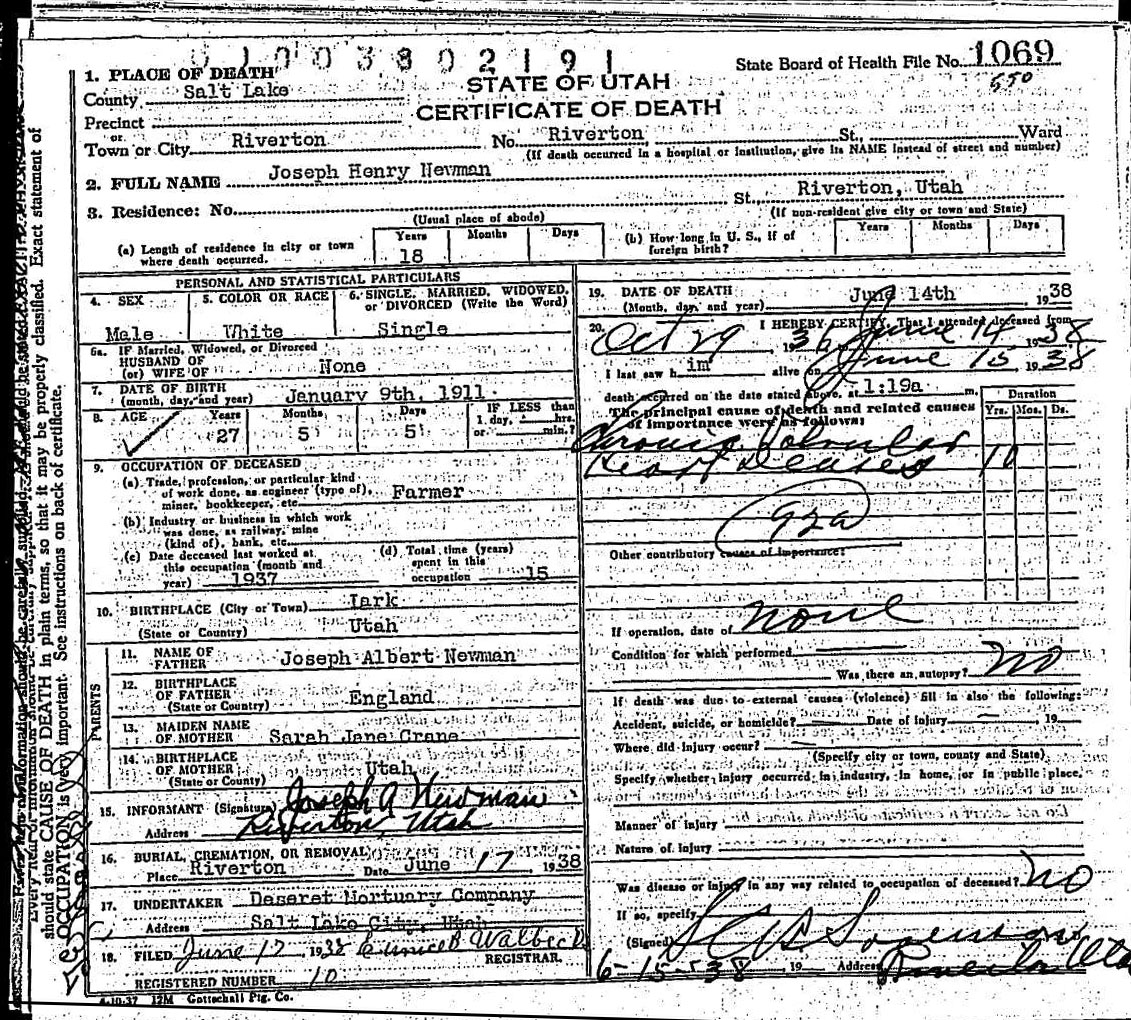 0 1 0 0 3 8 0 2 1 9 1
State Board of Health File No. 1069
550
STATE OF UTAH
CERTIFICATE OF DEATH
1. PLACE OF DEATH
County Salt Lake
Precinct
or
Town or City Riverton No. Riverton, St., Ward
(If death occurred in a hospital or institution, give its NAME instead of street and number)
2. FULL NAME Joseph Henry Newman
3. Residence: No. St., Riverton, Utah
(Usual place of abode) (If non-resident give city or town and State)
(a) Length of residence in city or town where death occurred. Years 18 Months Days
(b) How long in U. S., if of foreign birth? Years Months Days
PERSONAL AND STATISTICAL PARTICULARS
4. SEX Male
5. COLOR OR RACE White
6. SINGLE, MARRIED, WIDOWED, or DIVORCED (Write the Word) Single
6a. IF Married, Widowed, or Divorced
HUSBAND OF
(or) WIFE OF None
7. DATE OF BIRTH
(month, day, and year) January 9th, 1911
8. AGE Years 27 Months 5 Days 5 IF LESS than 1 day, hrs. or min.?
9. OCCUPATION OF DECEASED
(a) Trade, profession, or particular kind
of work done, as engineer (type of),
miner, bookkeeper, etc. Farmer
(b) Industry or business in which work
was done, as railway, mine
(kind of), bank, etc.
(c) Date deceased last worked at
this occupation (month and
year) 1937
(d) Total time (years)
spent in this
occupation 15
10. BIRTHPLACE (City or Town) Lark
(State or Country) Utah
PARENTS
11. NAME OF
FATHER Joseph Albert Newman
12. BIRTHPLACE
OF FATHER England
(State or Country)
13. MAIDEN NAME
OF MOTHER Sarah Jane Crane
14. BIRTHPLACE
OF MOTHER Utah
(State or County)
15. INFORMANT (Signature) Joseph A Newman
Address Riverton, Utah
16. BURIAL, CREMATION, OR REMOVAL
Place Riverton Date June 17 1938
17. UNDERTAKER Deseret Mortuary Company
Address Salt Lake City, Utah
18. FILED June 17, 1938 Eunice B Walbeck
REGISTRAR.
REGISTERED NUMBER 10
4-10-37 12M Gottschall Ptg. Co.
19. DATE OF DEATH
(Month, day, and year) June 14th 1938
20. I HEREBY CERTIFY, That I attended deceased from
Oct 29 1936 June 14 1938
I last saw him alive on June 13 1938
death occurred on the date stated above, at 1:19a m.
The principal cause of death and related causes
of importance were as follows:
Duration
Yrs. Mos. Ds.
Chronic Valvular
Heart Disease 10
92a
Other contributory causes of importance:
If operation, date of none
Condition for which performed
Was there an autopsy? no
If death was due to external causes (violence) fill in also the following:
Accident, suicide, or homicide? Date of injury 19
Where did injury occur?
(Specify city or town, county and State)
Specify whether injury occurred in industry, in home, or in public place,
Manner of injury
Nature of injury
Was disease or injury in any way related to occupation of deceased? no
If so, specify
(Signed) Sorenson
6-15-38 19 Address
should state CAUSE OF DEATH in plain terms, so that it may be properly classified. Exact statement of
OCCUPATION is very important. See instructions on back of certificate.